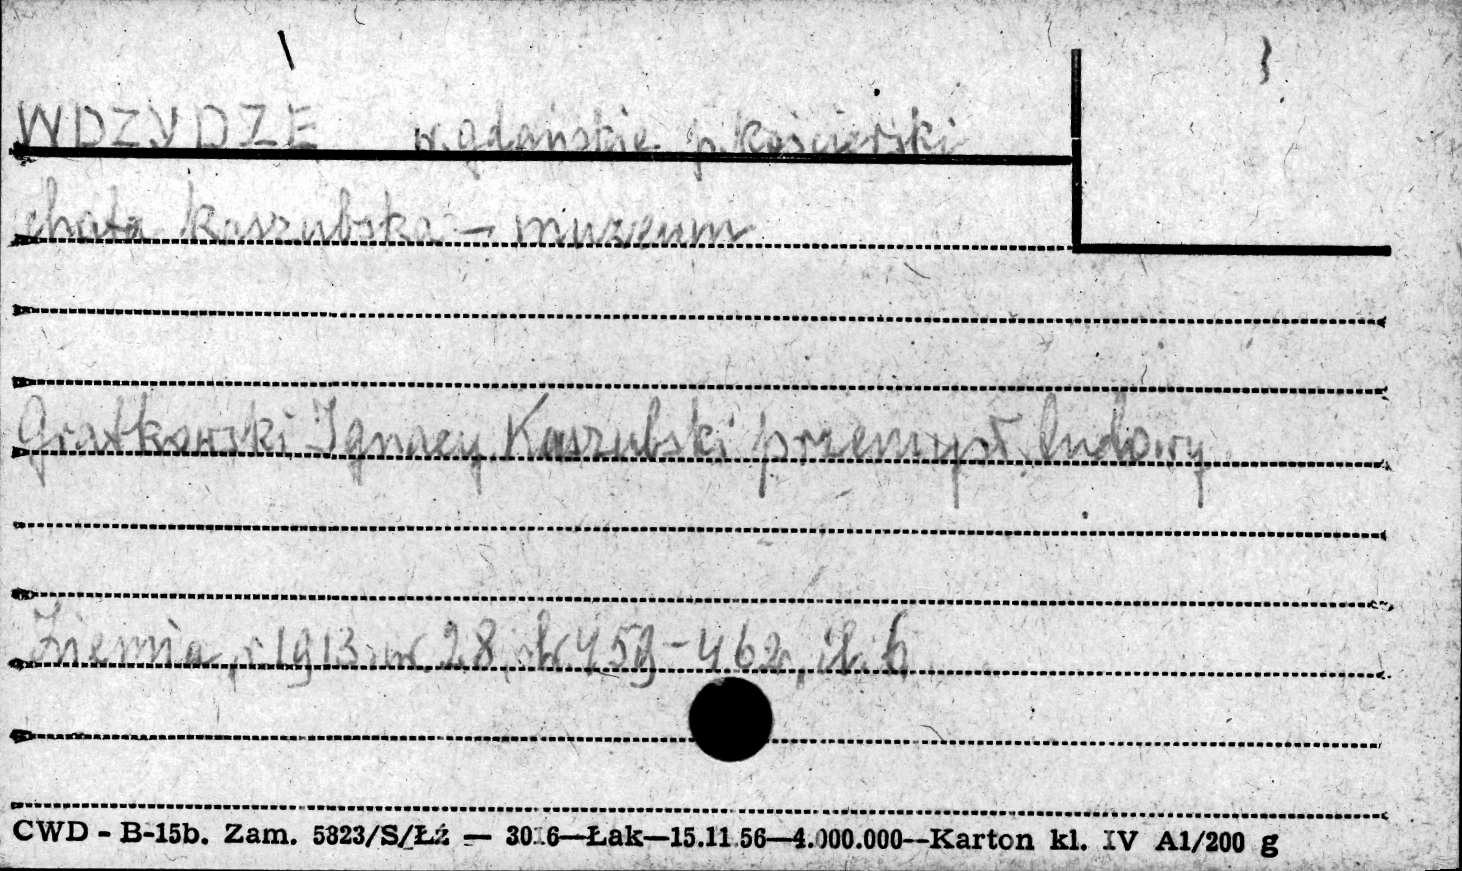 WDZYDZE w. gdańskie p. kościerski
chata kaszubska – muzeum
Gratkowski Ignacy Kaszubski przemysł ludowy
Ziemia, r. 1913 nr. 28, str. 459–462, il. 6
CWD - B-15b. Zam. 5823/S/Łź — 30.6—Łak—15.11 56—4.000.000—Karton kl. IV A1/200 g